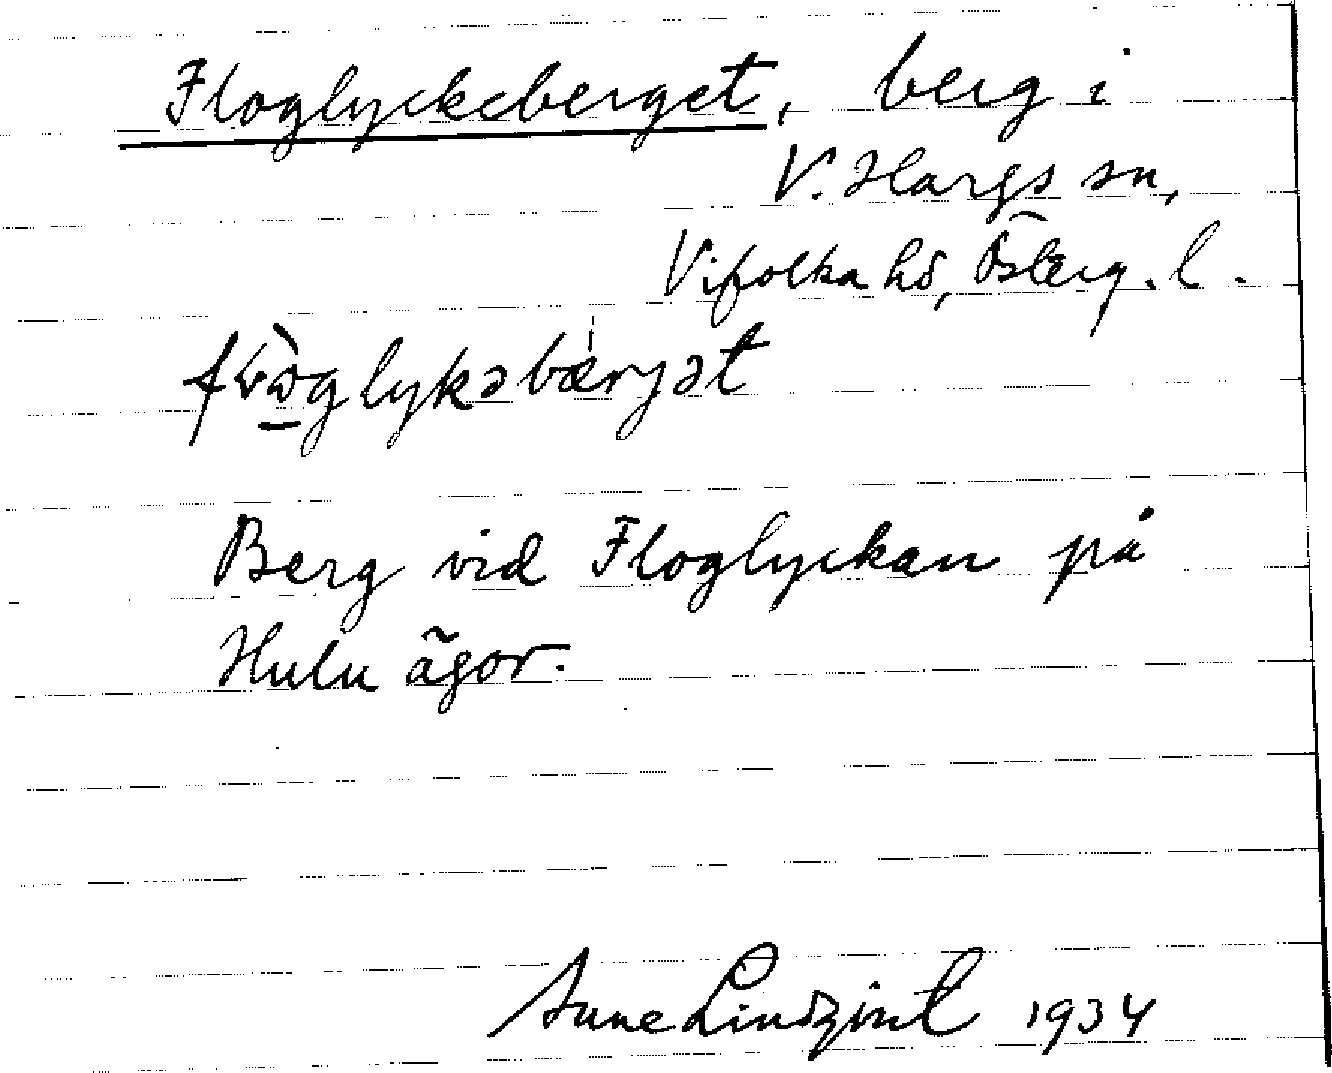 Floglyckeberget, berg i
V. Hargs sn,
Vifolka hd, Österg. l.
Berg vid Floglyckan på
Hulu ägor.
Sune Lindqvist 1934